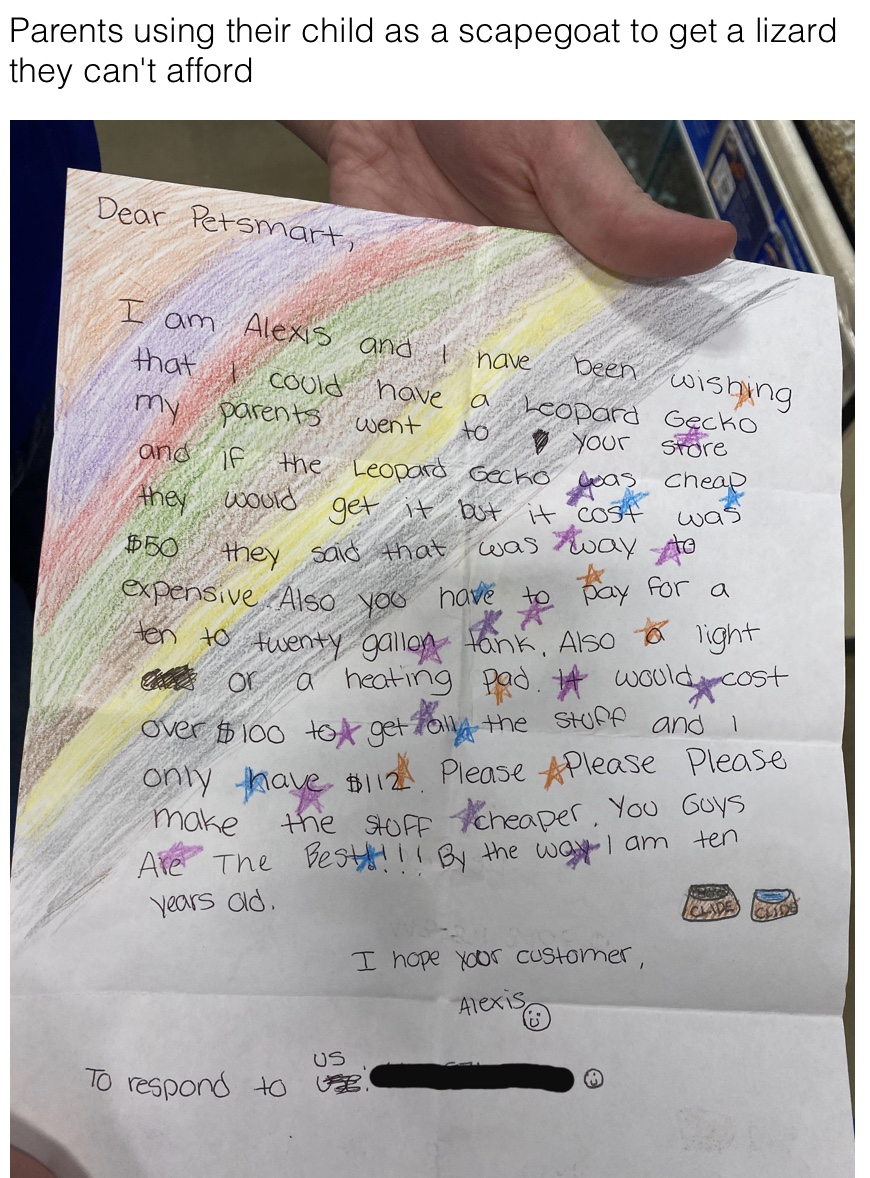 Parents using their child as a scapegoat to get a lizard
they can't afford
Dear Petsmart,
I am Alexis and I have been wishing
that I could have a Leopard Gecko
my parents went to your store
and if the Leopard Gecko was cheap
they would get it but it cost was
$50 they said that was way to
expensive. Also you have to pay for a
ten to twenty gallon tank. Also a light
or a heating pad. It would cost
over $100 to get all the stuff and I
only have $112. Please Please Please
make the stuff cheaper. You Guys
Are The Best!!!! By the way I am ten
years old.
CLIDE CLIDE
I hope your customer,
Alexis
US
To respond to :